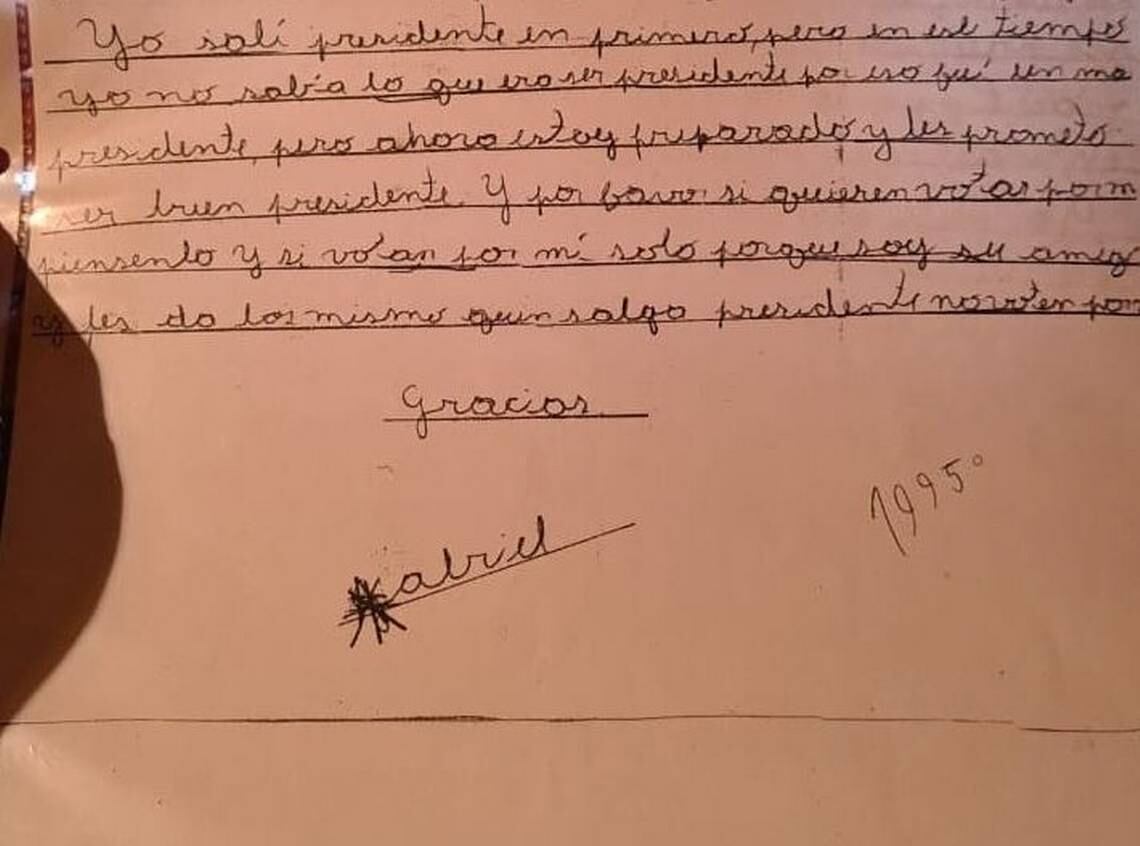 Yo salí presidente en primero, pero en ese tiempo
yo no sabía lo que era ser presidente por eso fuí un ma
presidente, pero ahora estoy preparado y les prometo
ser buen presidente. Y por favor si quieren votar por m
piensenlo y si votan por mí solo porque soy su amig
y les da los mismo quin salga presidente no voten por
Gracias
Gabriel
1995°